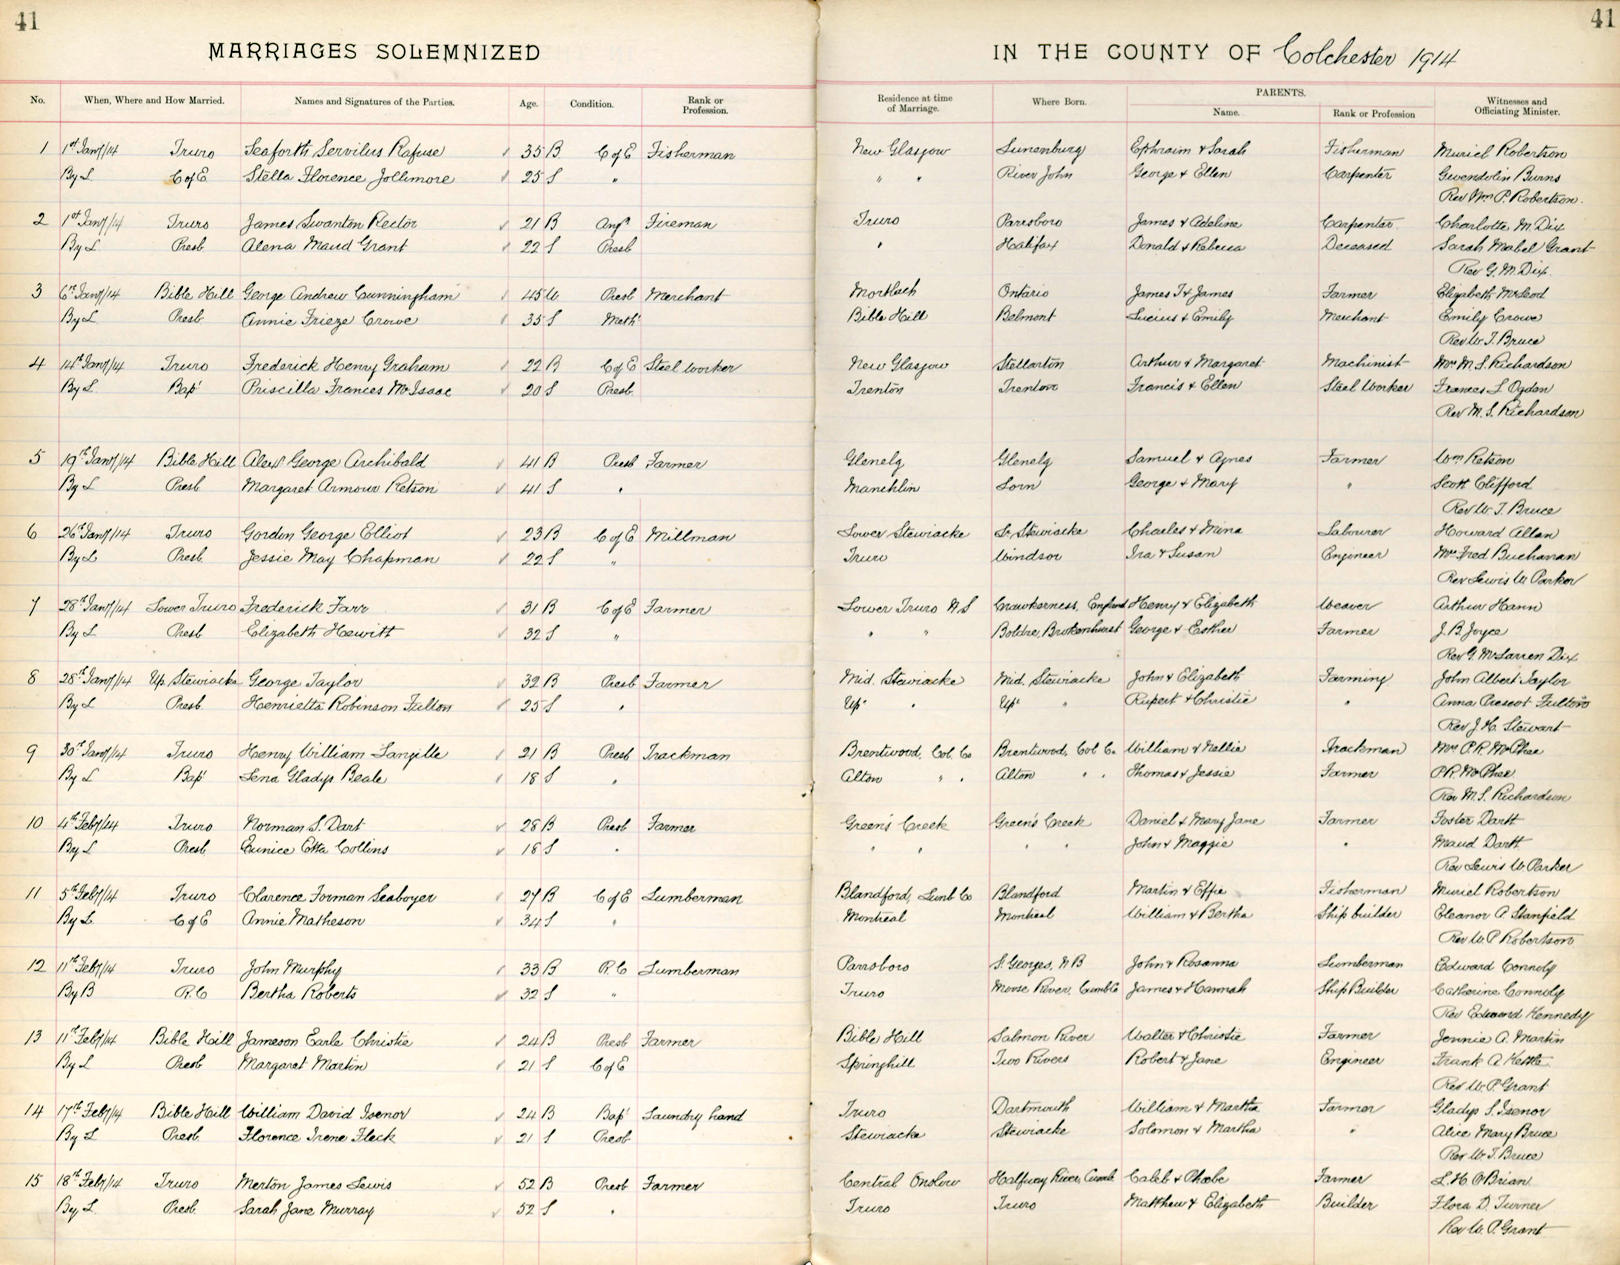 41
41
MARRIAGES SOLEMNIZED
IN THE COUNTY OF Colchester 1914
No. When, Where and How Married. Names and Signatures of the Parties. Age. Condition. Rank or Profession. Residence at time of Marriage. Where Born. PARENTS. Name. Rank or Profession Witnesses and Officiating Minister.
1 1st Jany/14 Truro Seaforth Servilus Rafuse 35 B C of E Fisherman New Glasgow Lunenburg Ephraim & Sarah Fisherman Muriel Robertson
By L C of E Stella Florence Jollimore 25 S " " " River John George & Ellen Carpenter Gwendolin Burns
Rev Wm P. Robertson.
2 1st Jany/14 Truro James Swanton Rector 21 B Fireman Truro Parrsboro James & Adeline Carpenter Charlotte M. Dix
By L Presb Alena Maud Grant 22 S Presb " Halifax Donald & Rebecca Deceased Sarah Mabel Grant
Rev G. M. Dix.
3 6th Jany/14 Bible Hill George Andrew Cunningham 45 W Presb Merchant Mortlach Ontario James T & James Farmer Elizabeth McLeod
By L Presb Annie Frieze Crowe 35 S Meth Bible Hill Belmont Lucius & Emily Merchant Emily Crowe
Rev W. T. Bruce
4 14th Jany/14 Truro Frederick Henry Graham 22 B C of E Steel worker New Glasgow Stellarton Arthur & Margaret Machinist Mrs M. S. Richardson
By L Bapt Priscilla Frances McIsaac 20 S Presb. Trenton Trenton Francis & Ellen Steel Worker Frances L Ogden
Rev M. S. Richardson
5 19th Jany/14 Bible Hill Alexr George Archibald 41 B Presb Farmer Glenelg Glenelg Samuel & Agnes Farmer Wm Retson
By L Presb Margaret Armour Retson 41 S " Lorn George & Mary " Scott Clifford
Rev W. T. Bruce
6 26th Jany/14 Truro Gordon George Elliot 23 B C of E Millman Lower Stewiacke Lr Stewiacke Charles & Mina Labourer Howard Allan
By L Presb. Jessie May Chapman 22 S " Truro Windsor Ira & Susan Engineer Mrs Fred Buchanan
Rev Lewis W Parker
7 28th Jany/14 Lower Truro Frederick Farr 31 B C of E Farmer Lower Truro N.S Crewkerness, England Henry & Elizabeth Weaver Arthur Hann
By L Presb Elizabeth Hewitt 32 S " " " Boldre, Brokenhurst George & Esther Farmer J. B. Joyce
Rev G. McLarren Dix
8 28th Jany/14 Up. Stewiacke George Taylor 32 B Presb Farmer Mid. Stewiacke Mid. Stewiacke John & Elizabeth Farming John Albert Taylor
By L Presb Henrietta Robinson Fulton 25 S " Upr " Upr " Rupert & Christie " Anna Prescot Fulton
Rev J. H. Stewart
9 30th Jany/14 Truro Henry William Langille 21 B Presb Trackman Brentwood, Col. Co Brentwood, Col Co. William & Nellie Trackman Mrs P. R. McPhee
By L Bapt Lena Gladys Beale 18 S " Alton " " Alton " " Thomas & Jessie Farmer P. R. McPhee
Rev M. S. Richardson
10 4th Feby/14 Truro Norman S. Dart 28 B Presb Farmer Green's Creek Green's Creek Daniel & Mary Jane Farmer Foster Dartt
By L Presb Eunice Etta Collins 18 S " " " " " John & Maggie " Maud Dartt
Rev Lewis W Parker
11 5th Feby/14 Truro Clarence Forman Seaboyer 27 B C of E Lumberman Blandford, Lunb Co Blandford Martin & Effie Fisherman Muriel Robertson
By L C of E Annie Matheson 34 S " Montreal Montreal William & Bertha Ship builder Eleanor A Stanfield
Rev W. P Robertson
12 11th Feby/14 Truro John Murphy 33 B R.C Lumberman Parrsboro St. Georges, N B John & Rosanna Lumberman Edward Connoly
By B R.C Bertha Roberts 32 S " Truro Moose River, Cumb Co James & Hannah Ship Builder Catherine Connoly
Rev Edward Kennedy
13 11th Feby/14 Bible Hill Jameson Earle Christie 24 B Presb Farmer Bible Hill Salmon River Walter & Christie Farmer Jennie A. Martin
By L Presb Margaret Martin 21 S C of E Springhill Two Rivers Robert & Jane Engineer Frank A Kettle
Rev W. P Grant
14 17th Feby/14 Bible Hill William David Isenor 24 B Bapt Laundry hand Truro Dartmouth William & Martha Farmer Gladys S. Isenor
By L Presb. Florence Irene Fleck 21 S Presb Stewiacke Stewiacke Solomon & Martha " Alice Mary Bruce
Rev W. T. Bruce
15 18th Feby/14 Truro Merton James Lewis 52 B Presb Farmer Central Onslow Halfway River, Cumb Caleb & Phoebe Farmer L. H. O'Brian
By L Presb. Sarah Jane Murray 52 S " Truro Truro Matthew & Elizabeth Builder Flora D. Turner
Rev W. P. Grant